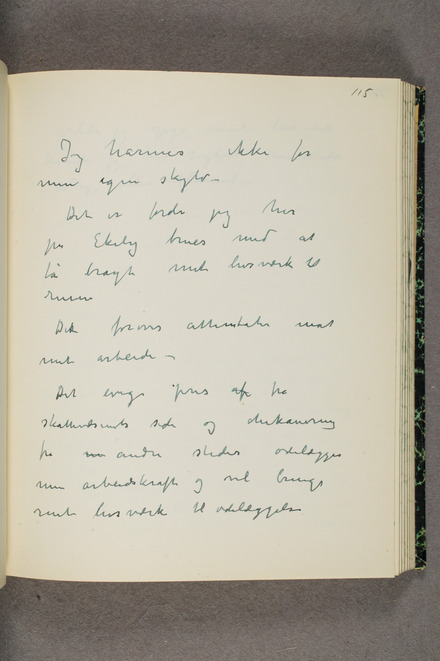 115
Jeg harmes ikke for
min egen skyld –
Det er fordi jeg her
på Ekely trues med at
få bragt mit livsværk til
ruine
Det forøves attentater mot
mit arbeide –
Det evige pres fra
skattevæsnets side og chikanering
fra andre steder ødelægger
min arbeidskraft og vil bringe
mit livsværk til ødelæggelse